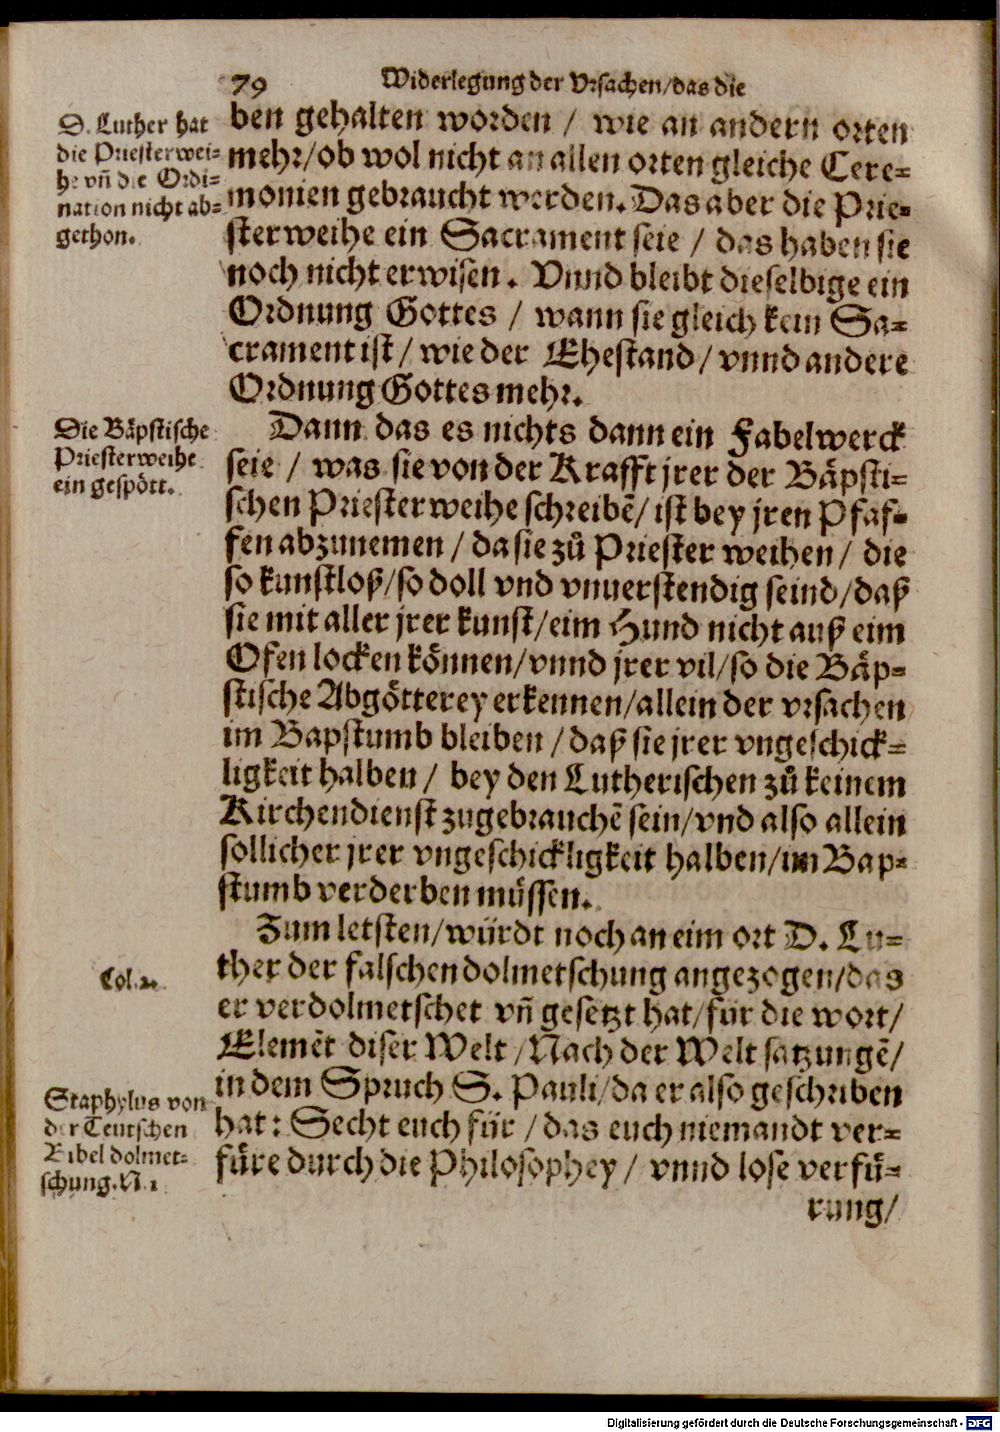 79 Widerlegung der Vrsachen/das die
D. Luther hat
die Priesterwei=
he vñ die Ordi=
nation nicht ab=
gethon.
ben gehalten worden / wie an andern orten
mehr/ob wol nicht an allen orten gleiche Cere=
monien gebraucht werden. Das aber die Prie=
sterweihe ein Sacrament seie / das haben sie
noch nicht erwisen. Vnnd bleibt dieselbige ein
Ordnung Gottes / wann sie gleich kein Sa=
crament ist / wie der Ehestand / vnnd andere
Ordnung Gottes mehr.
Die Bäpstische
Priesterweihe
ein gespött.
Dann das es nichts dann ein Fabelwerck
seie / was sie von der Krafft jrer der Bäpsti=
schen Priesterweihe schreibẽ/ ist bey jren Pfaf=
fen abzunemen / da sie zů Priester weihen / die
so kunstloß/so doll vnd vnuerstendig seind/daß
sie mit aller jrer kunst/eim Hund nicht auß eim
Ofen locken können/vnnd jrer vil/so die Bäp=
stische Abgötterey erkennen/allein der vrsachen
im Bapstumb bleiben / daß sie jrer vngeschick=
ligkeit halben / bey den Lutherischen zů keinem
Kirchendienst zugebrauchẽ sein/vnd also allein
sollicher jrer vngeschickligkeit halben/im Bap=
stumb verderben müssen.
Zum letsten/würdt noch an eim ort D. Lu=
ther der falschen dolmetschung angezogen/das
Col.2.
er verdolmetschet vñ gesetzt hat/für die wort/
Elemẽt diser Welt /Nach der Welt satzungẽ/
in dem Spruch S. Pauli/da er also geschriben
hat: Secht euch für / das euch niemandt ver=
füre durch die Philosophey / vnnd lose verfü=
Staphylus von
der Teutschen
Bibel dolmet=
schung.N.1
rung/
Digitalisierung gefördert durch die Deutsche Forschungsgemeinschaft - DFG